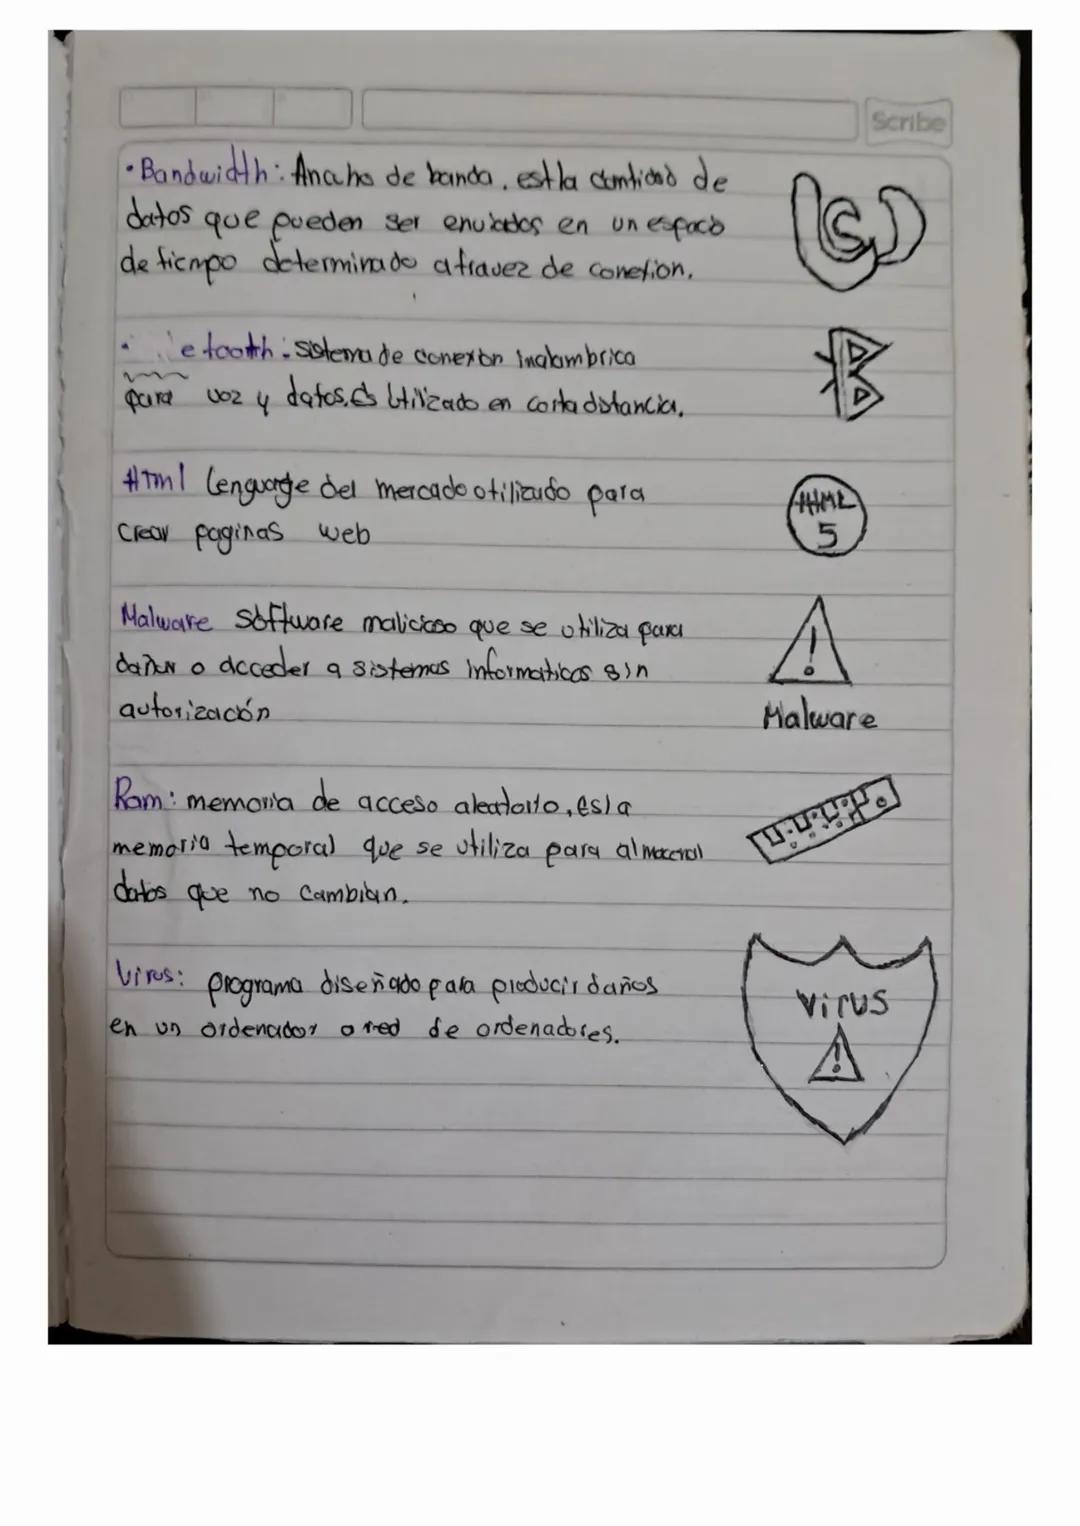 Scribe
· Bandwidth: Anacho de banda, est la cantidad de
datos que pueden ser enviados en un espacio
de tiempo determinado atravez de conexion.
etooth: sistema de conexion inalambrica
para voz y datos. Es Utilizado en corta distancia.
Html Lenguarge del mercado otilizado para
Crear paginas web
HTML
5
Malware Software malicioso que se utiliza para
dañar o acceder a sistemas informaticos sin
autorización
Malware
Ram: memoria de acceso aleatorio, es la
memoria temporal que se utiliza para
datos que no cambian.
Virus: programa diseñado para producir daños
en un ordenador o red de ordenadores.
Virus